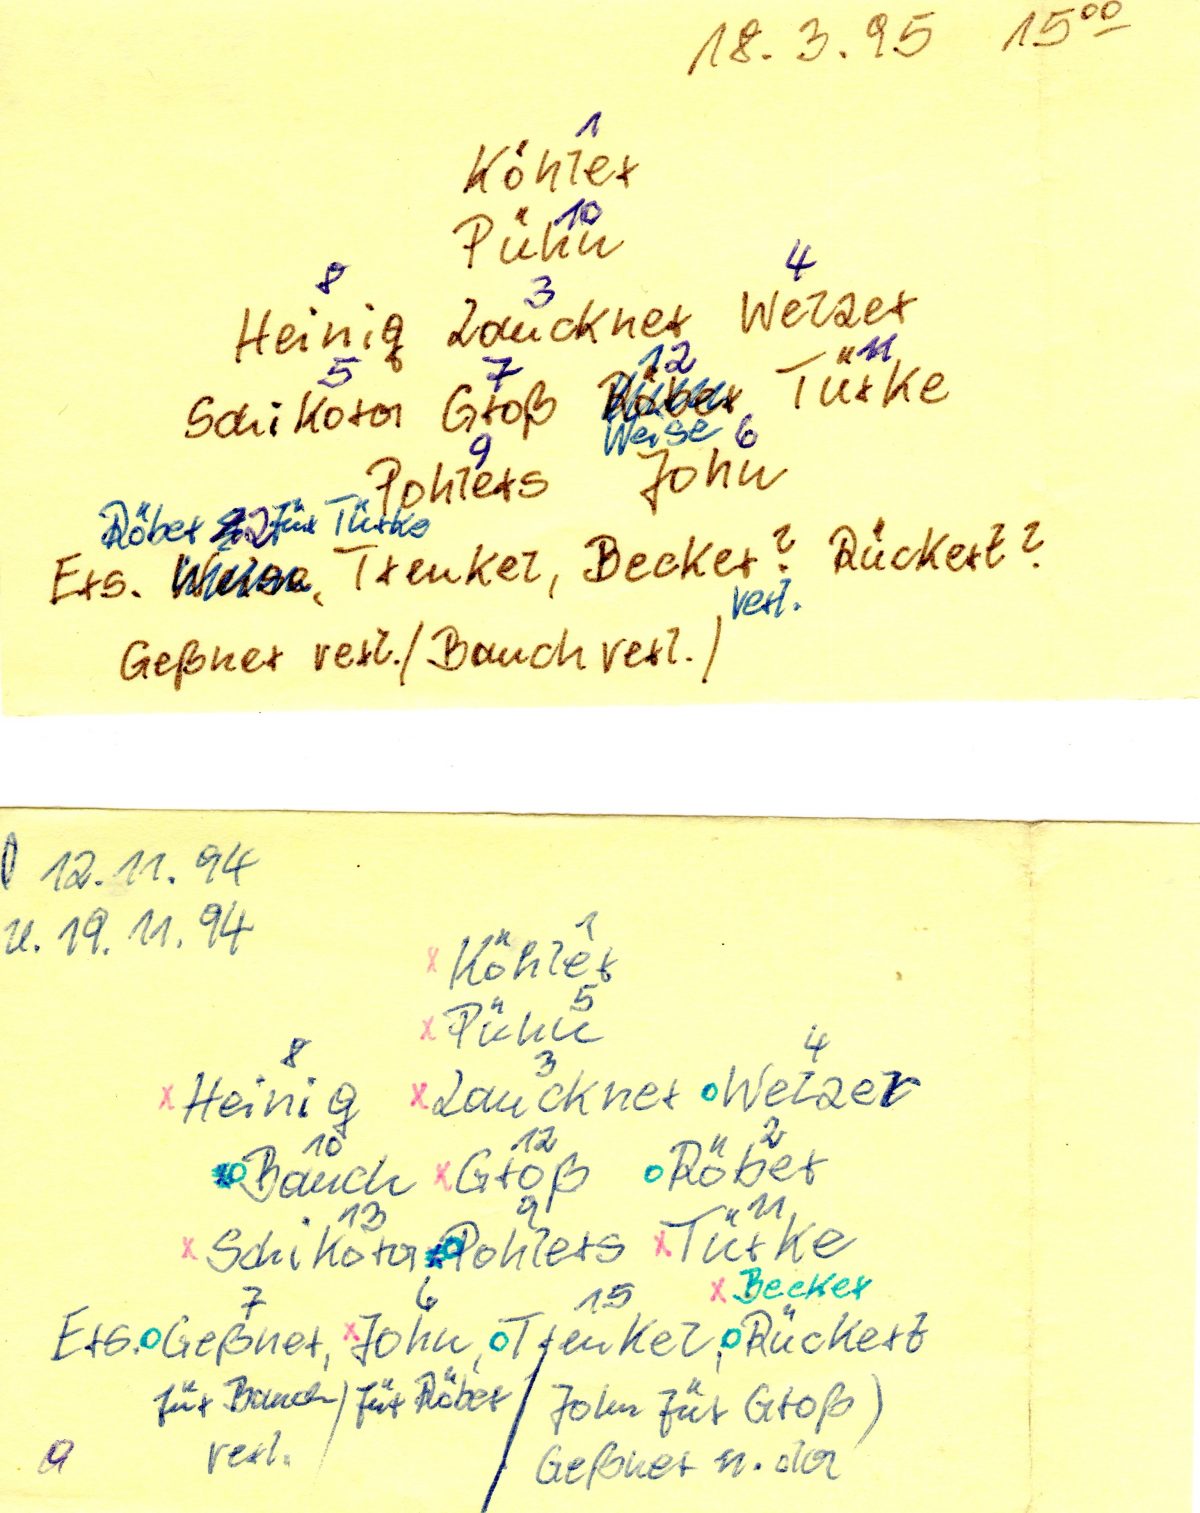 18.3.95 15⁰⁰
1
Köhler
10
Pühn
8 3 4
Heinig Lauckner Welzer
5 7 12 11
Schikora Groß Röber Türke
Weise
9 6
Pohlers John
Röber 2 für Türke
Ers. Weise, Trenkel, Becker? Rückert?
verl.
Geßner verl./Bauch verl./
12.11.94
u. 19.11.94
1
x Köhler
5
x Pühn
8 3 4
x Heinig x Lauckner o Welzer
10 12 2
o Bauch x Groß o Röber
13 9 11
x Schikora Pohlers x Türke
x Becker
7 6 15
Ers. o Geßner, x John, o Trenkel, o Rückert
für Bauch / für Röber / John für Groß)
verl. Geßner n. da